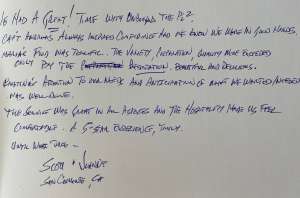 We Had A Great! Time With Onboard The "P.2".
Capt. Always Inspires Confidence And We Know We Were In Good Hands.
Food Was Terrific. The Variety, Presentation, Quality Were Exceeded
Only By The Presentation. Beautiful And Delicious.
Attention To Our Needs And Anticipation Of What We Wanted/Needed
Was Well Done.
The Service Was Great In All Aspects And The Hospitality Made Us Feel
Comfortable. A 5-Star Experience, Truly.
Until Next Time -
Scott +
San Clemente, CA